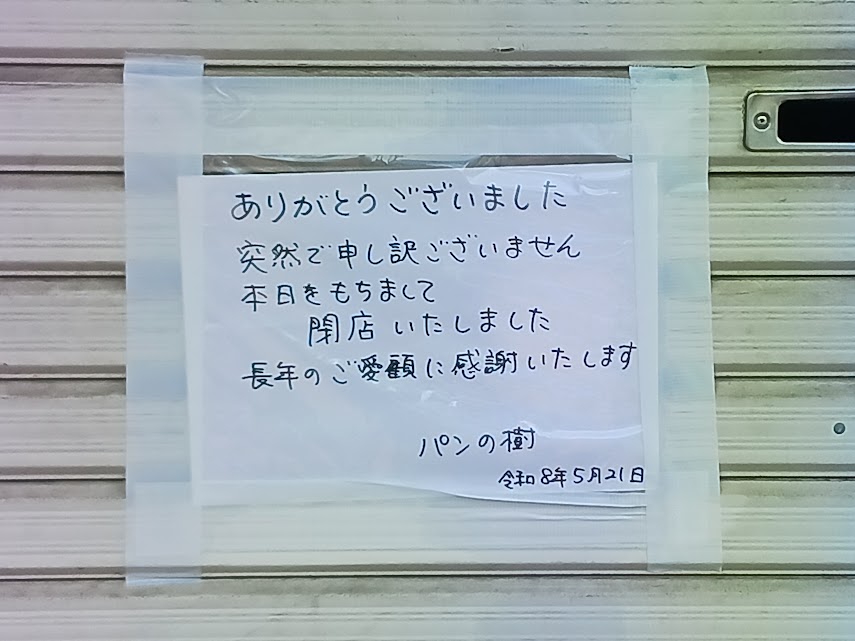 ありがとうございました
突然で申し訳ございません
本日をもちまして
閉店いたしました
長年のご愛顧に感謝いたします
パンの樹
令和8年5月21日